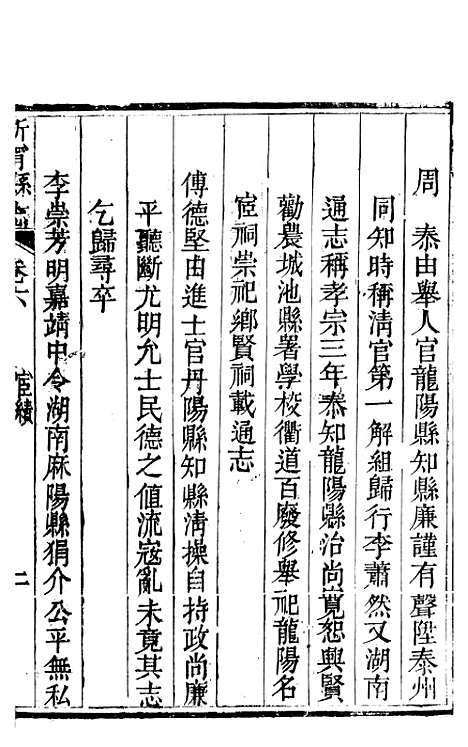 周　泰由舉人官龍陽縣知縣廉謹有聲陞泰州
同知時稱清官第一解組歸行李蕭然又湖南
通志稱孝宗三年泰知龍陽縣治尚寬恕興賢
勸農城池縣署學校衢道百廢修舉祀龍陽名
宦祠崇祀鄉賢祠載通志
傅德堅由進士官丹陽縣知縣清操自持政尚廉
平聽斷尤明允士民德之値流寇亂未竟其志
乞歸尋卒
李崇芳明嘉靖中令湖南麻陽縣狷介公平無私
新甯縣志　卷十六　宦績　二